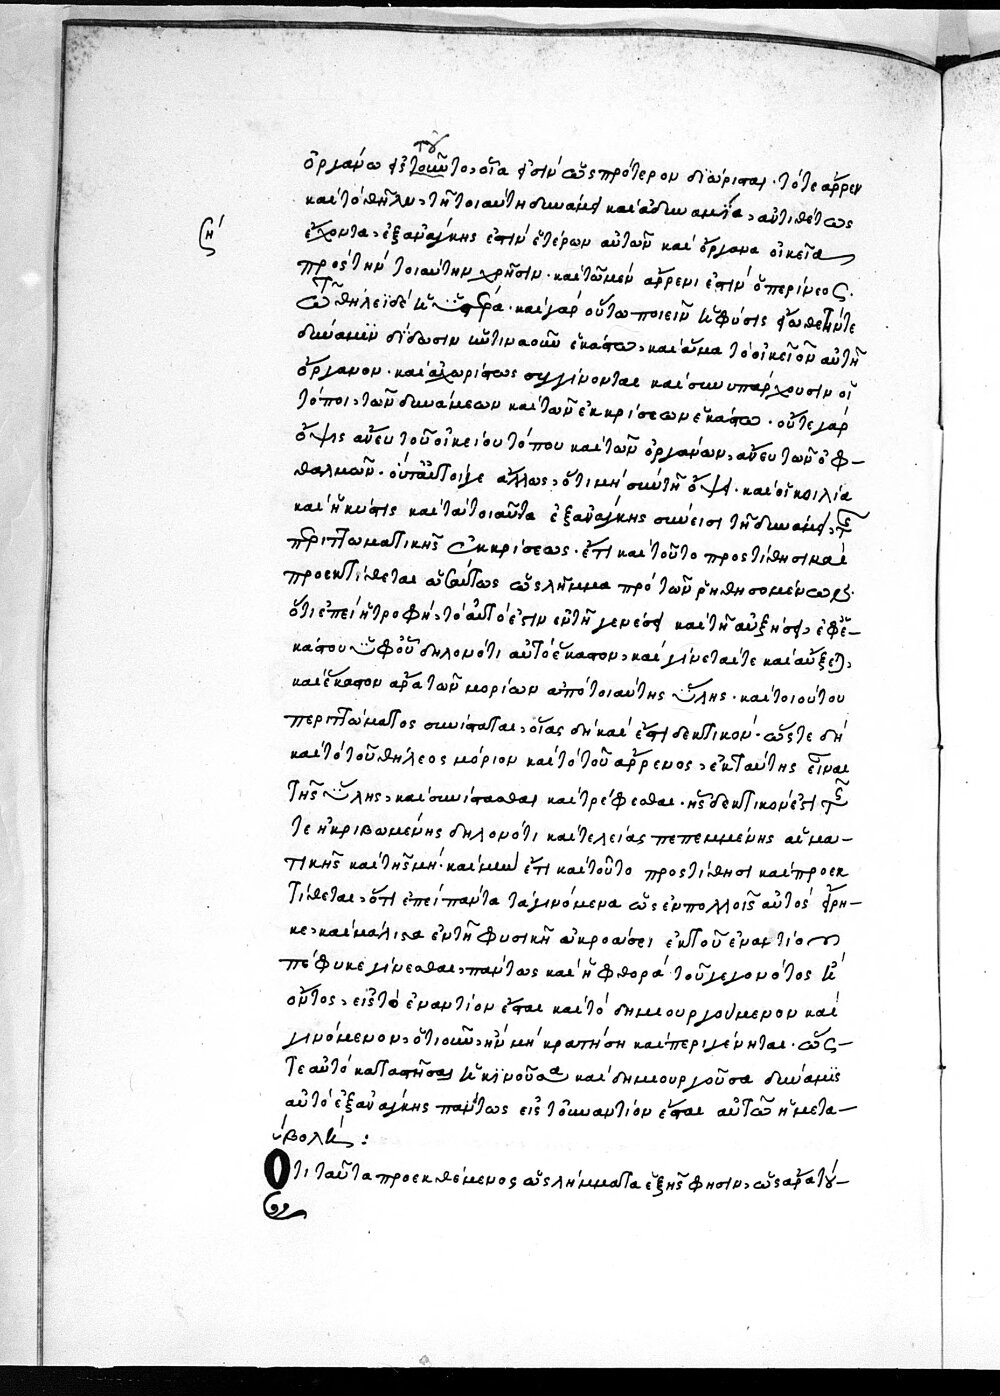 ὀργάνω
καὶ τὸ θῆλυ τῆ τοιαύτη δυνάμει καὶ ἀδυναμία, ἀντιθέτως
ση
ἔχοντα, ἐξανάγκης ἐστὶν ἑτέρων αὐτῶν καὶ ὄργανα οἰκεῖα
πρὸς τὴν τοιαύτην χρῆσιν. καὶ τῶ μὲν ἄρρενι ἐστὶν ὁ περίνεος.
τῶ θήλει δὲ ἡ ὑστέρα. καὶ γὰρ οὕτω ποιεῖν ἡ φύσις
δύναμιν δίδωσιν ἑκάστω, καὶ ἅμα τὸ οἰκεῖον αὐτῆ
ὄργανον. καὶ ἀχωρίστως συγγίνονται καὶ συνυπάρχουσιν οἱ
τόποι, τῶν δυνάμεων καὶ τῶν ἐκκρίσεων ἑκάστω. οὔτε γὰρ
ὄψις ἄνευ τοῦ οἰκείου τόπου καὶ τῶν ὀργάνων, ἄνευ τῶν ὀφ-
θαλμῶν. ἄλλως, ὅτι μὴ σὺν τῆ ὄψει. καὶ ἡ κοιλία
καὶ ἡ κύστις καὶ τὰ τοιαῦτα ἐξανάγκης σύνεισι τῆ δυνάμει, τῆς
περιττωματικῆς ἐκκρίσεως. ἔτι καὶ τοῦτο προστίθησι καὶ
προεκτίθεται αὖ πάντως ὡς λῆμμα πρὸ τῶν ῥηθησομένων.
ὅτι ἐπεὶ ἡ τροφὴ, τὸ αὐτό ἐστιν ἐν τῆ γενέσει καὶ τῆ αὐξήσει, ἐφ' ἑ-
κάστου ὑφ' οὗ δηλονότι αὐτὸ ἕκαστον, καὶ γίνεται τε καὶ αὔξει,
καὶ ἕκαστον ἄρα τῶν μορίων ἀπὸ τοιαύτης ὕλης. καὶ τοιούτου
περιττώματος συνίσταται, οἵας δὴ καὶ ἔστι δεκτικόν. ὥστε δὴ
καὶ τὸ τοῦ θήλεος μόριον καὶ τὸ τοῦ ἄρρενος, ἐκ ταύτης εἶναι
τῆς ὕλης, καὶ συνίστασθαι καὶ τρέφεσθαι. ἧς δεκτικόν ἐστι τῆς
τε ἠκριβωμένης δηλονότι καὶ τελείας πεπεμμένης αἱμα-
τικῆς καὶ τῆς μή. καὶ μὴν ἔτι καὶ τοῦτο προστίθησι καὶ προεκ
τίθεται, ὅτι ἐπεὶ πάντα τὰ γινόμενα ὡς ἐν πολλοῖς αὐτὸς εἴρη-
κε, καὶ μάλιστα ἐν τῆ φυσικῆ ἀκροάσει ἐκ τοῦ ἐναντίου
πέφυκε γίνεσθαι, πάντως καὶ ἡ φθορὰ τοῦ γεγονότος ἢ
ὄντος, εἰς τὸ ἐναντίον ἔσται καὶ τὸ δημιουργούμενον καὶ
γινόμενον, ὁτιοῦν, ἢν μὴ κρατήση καὶ περιγένηται. ὥσ-
τε αὐτὸ καταστῆσαι ἡ κινοῦσα καὶ δημιουργοῦσα δύναμις
αὐτὸ ἐξανάγκης πάντως εἰς τοὐναντίον ἔσται αὐτῶ ἡ μετα-
βολή:
Ὅτι ταῦτα προεκθέμενος ὡς λήμματα ἑξῆς φησιν, ὡς ἄρα τού-